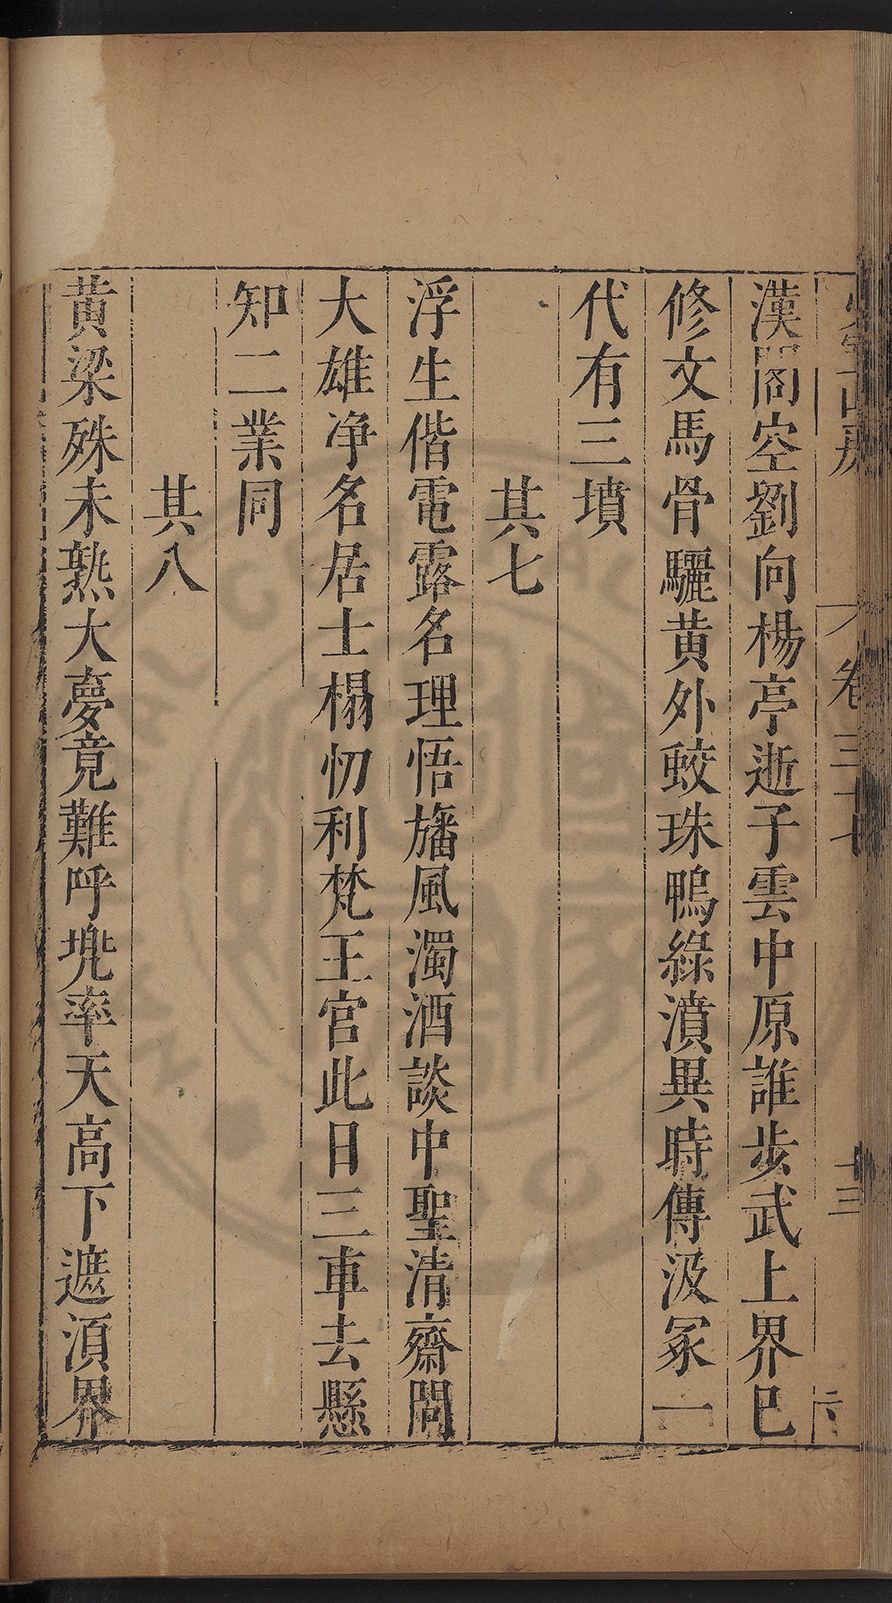 漢閣空劉向楊亭逝子雲中原誰步武上界巳
修文馬骨驪黃外蛟珠鴨綠濆異時傳汲冢一
代有三墳
其七
浮生偕電露名理悟旛風濁酒談中聖清齋問
大雄净名居士榻忉利梵王宮此日三車去懸
知二業同
其八
黃梁殊未熟大夢竟難呼兠率天高下遮湏界